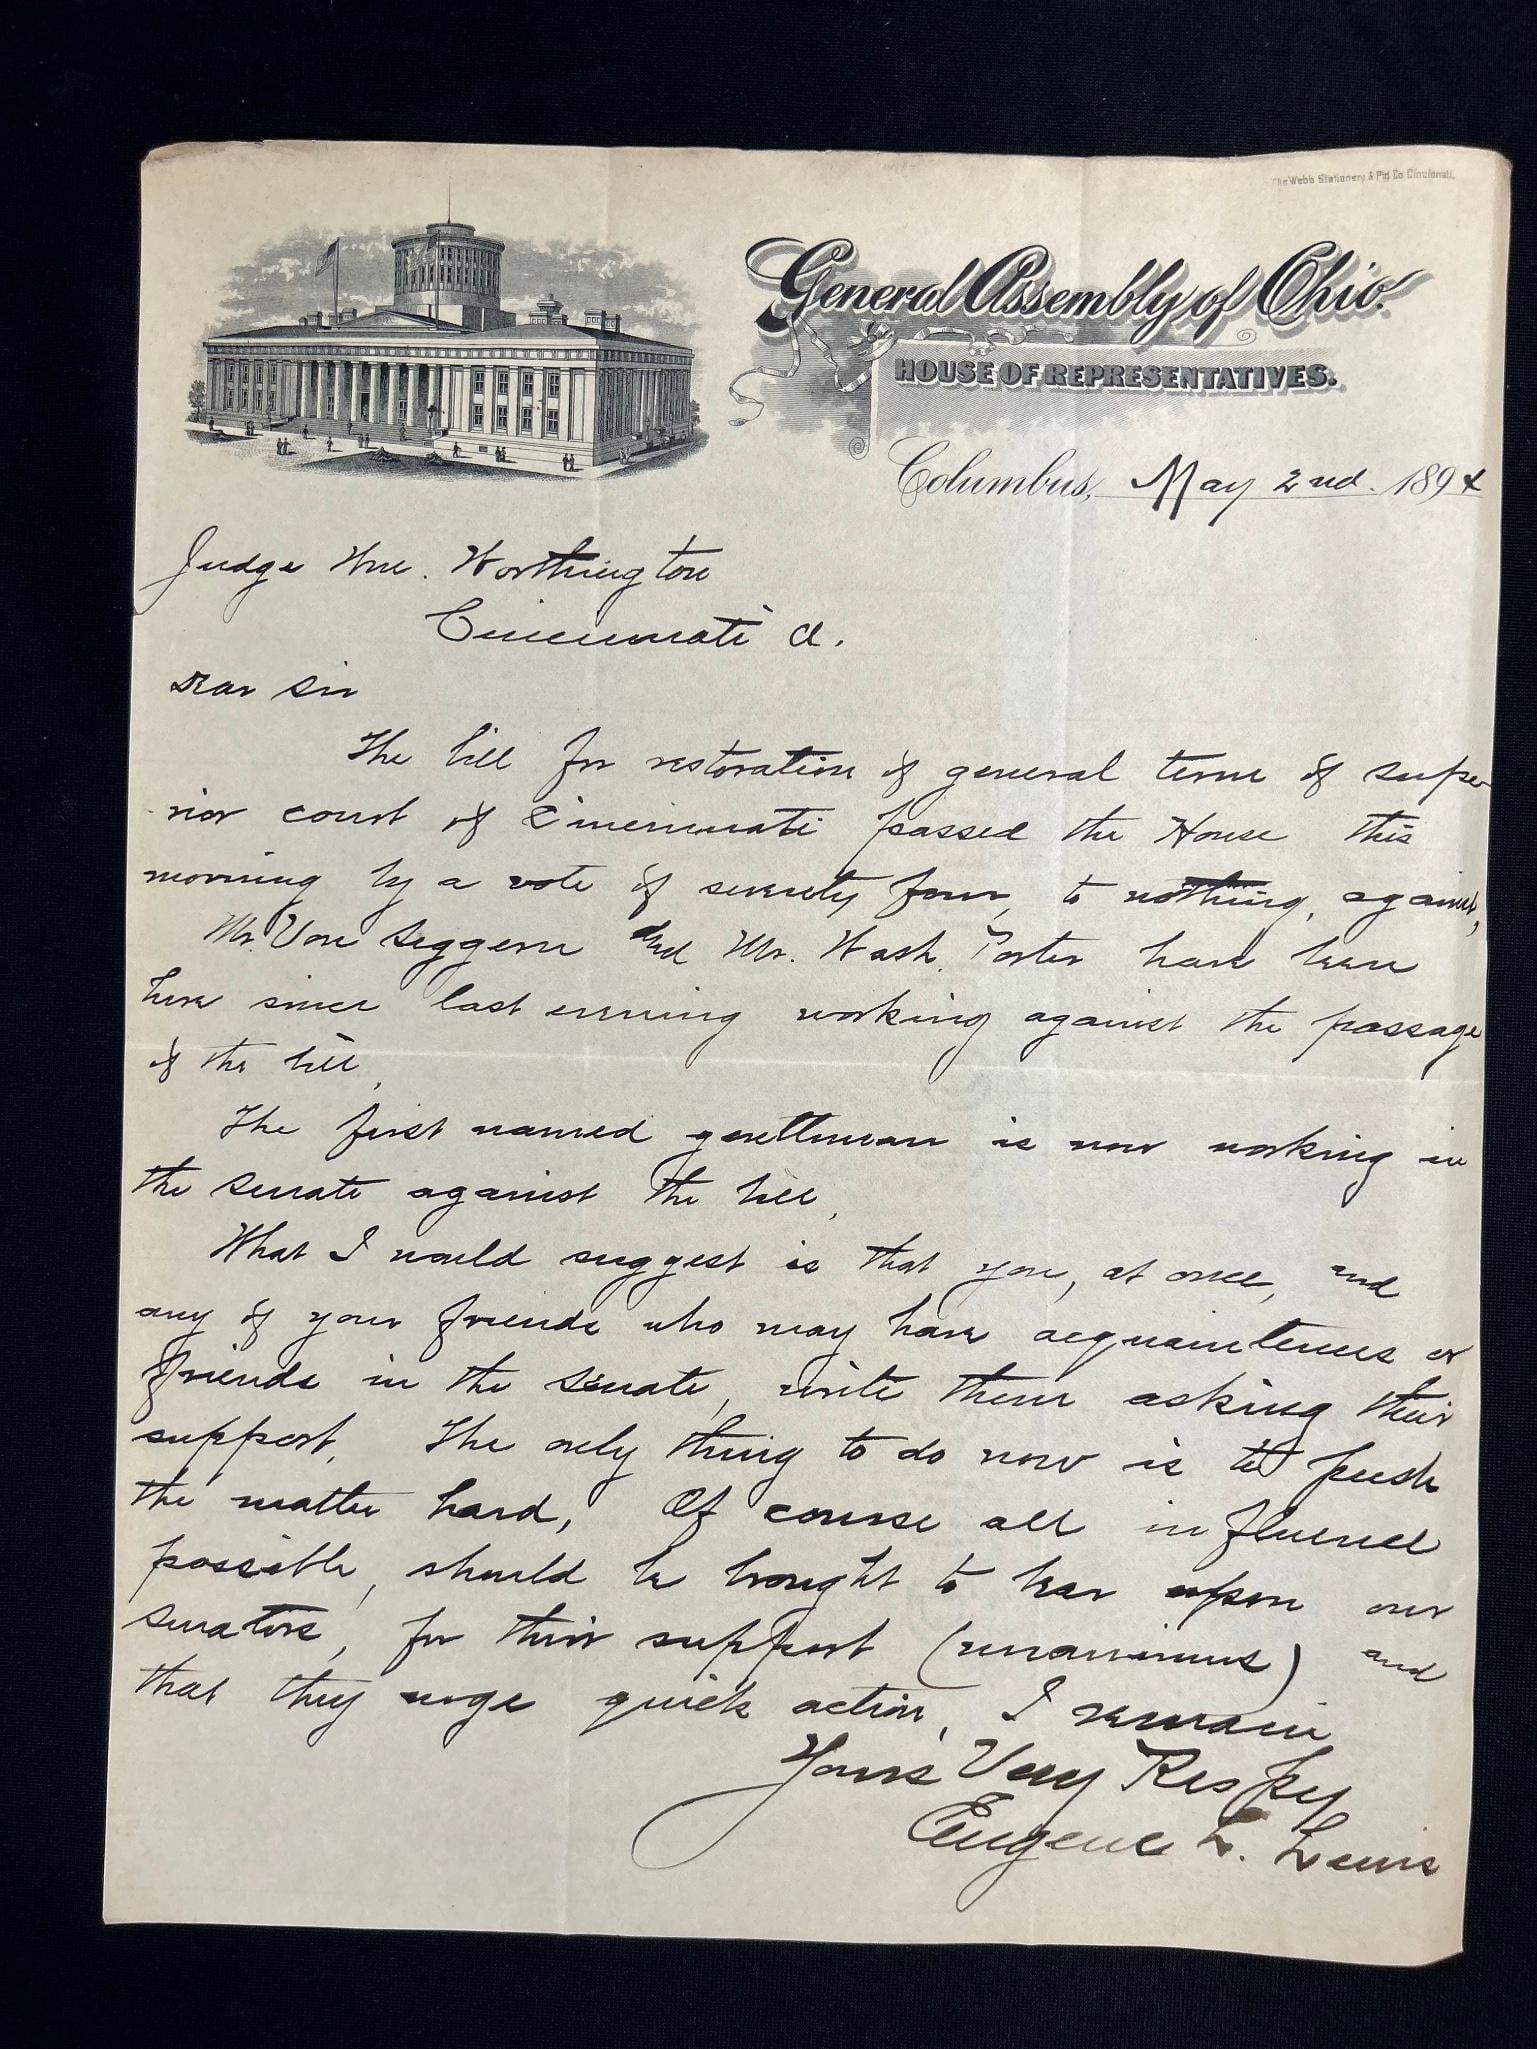 The Webb Stationery & Ptg Co Cincinnati.
General Assembly of Ohio.
HOUSE OF REPRESENTATIVES.
Columbus, May 2nd. 1894
Judge Wm. Worthington
Cincinnati O.
Dear Sir
The bill for restoration of general term of supe-
rior court of Cincinnati passed the House this
morning by a vote of seventy four, to nothing, against,
Mr. Von Seggern and Mr. Wash. Porter have been
here since last evening working against the passage
of the bill,
The first named gentleman is now working in
the senate against the bill,
What I would suggest is that you, at once, and
any of your friends who may have acquaintences or
friends in the senate, write them asking their
support, The only thing to do now is to push
the matter hard, Of course all influence
possible, should be brought to bear upon our
senators, for their support (unanimus) and
that they urge quick action, I remain
Yours Very Respy
Eugene L. Lewis